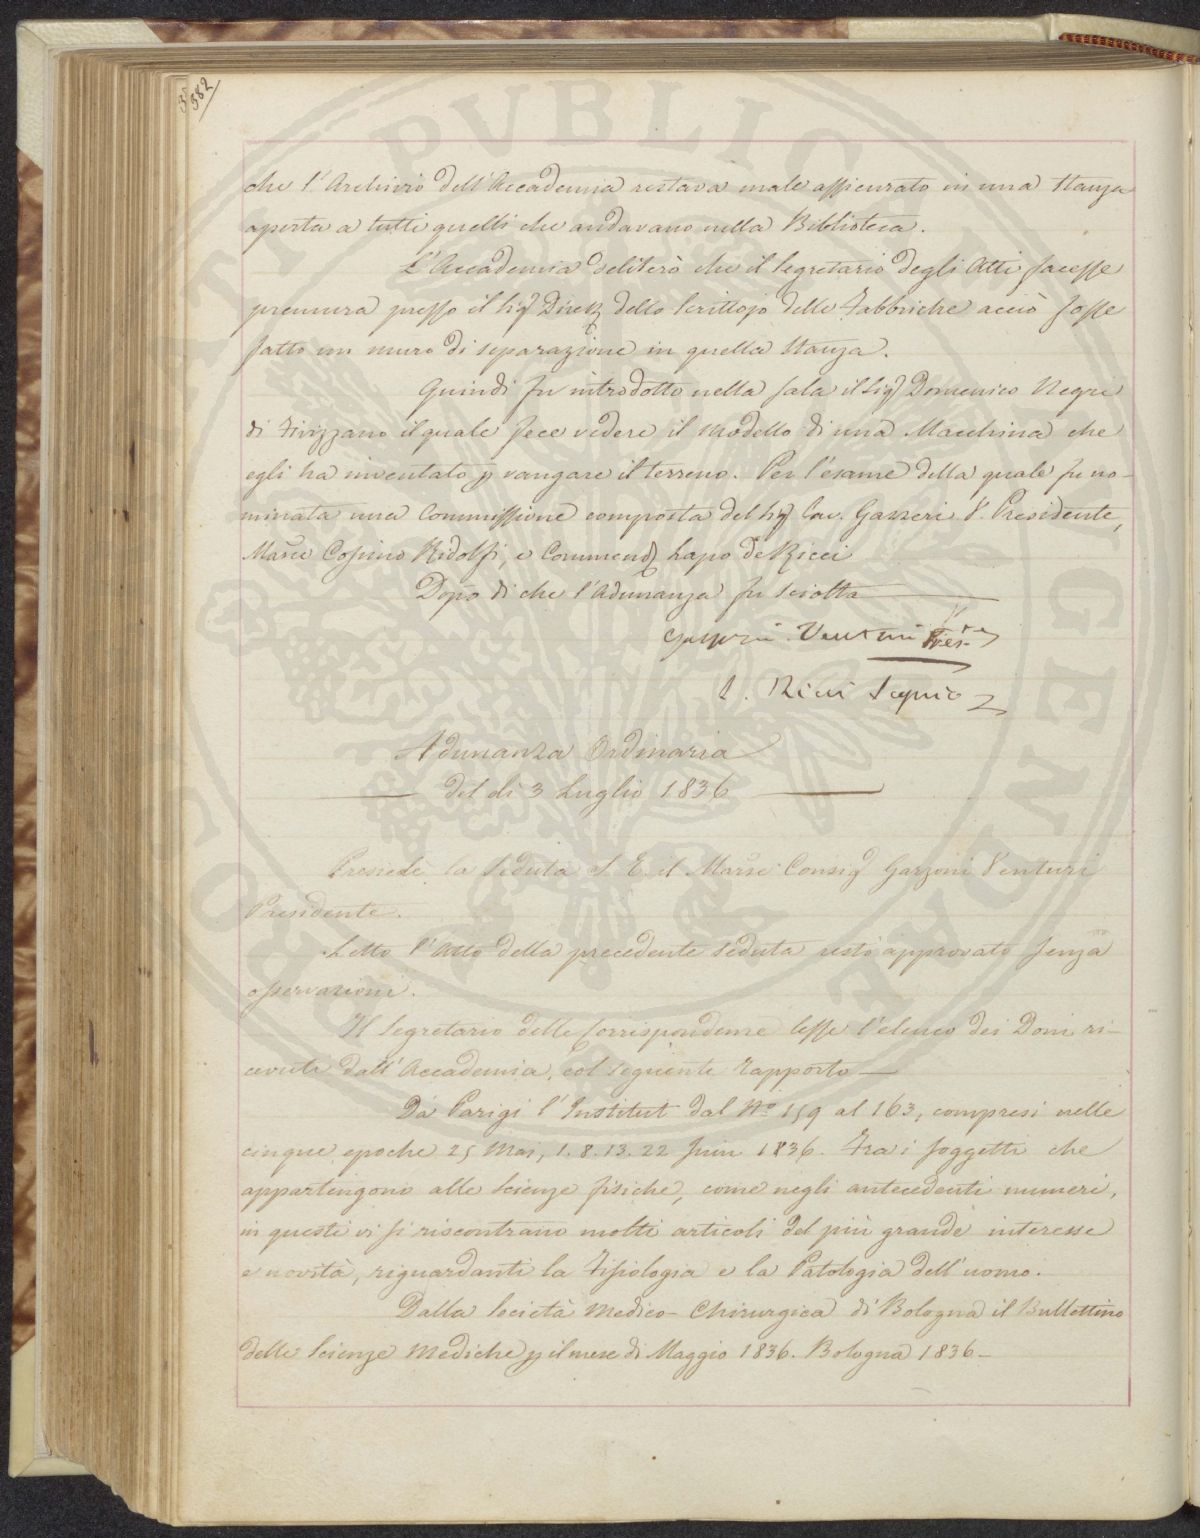 582
che l'Archivio dell'Accademia restava male assicurato in una Stanza
aperta a tutti quelli che andavano nella Biblioteca.
L'Accademia deliberò che il Segretario degli Atti facesse
premura presso il Sig Dirett dello Scrittojo delle Fabbriche acciò fosse
fatto un muro di separazione in quella Stanza.
Quindi fu introdotto nella sala il Sig Domenico Negri
di Fivizzano il quale fece vedere il modello di una Macchina che
egli ha inventato p vangare il terreno. Per l'esame della quale fu no-
minata una Commissione composta del Sig Cav. Gazzeri V. Presidente,
Marce Cosimo Ridolfi, e Commend Lapo De Ricci
Dopo di che l'Adunanza fu sciolta
Garzoni Venturi Pres.te
L. Ricci Segrio
Adunanza Ordinaria
del dì 3 Luglio 1836
Presiedè la Seduta S. E. il Marse Consig Garzoni Venturi
Presidente.
Letto l'Atto della precedente seduta restò approvato senza
osservazioni.
Il Segretario delle Corrispondenze lesse l'elenco dei Doni ri-
cevuti dall'Accademia, col seguente rapporto —
Da Parigi l'Institut dal No 159 al 163, compresi nelle
cinque epoche 25 Mai, 1. 8. 13. 22 Juin 1836. Fra i soggetti che
appartengono alle scienze fisiche, come negli antecedenti numeri,
in questi vi si riscontrano molti articoli del più grande interesse
e novità, riguardanti la Fisiologia e la Patologia dell'uomo.
Dalla Società Medico-Chirurgica di Bologna il Bullettino
delle Scienze Mediche p il mese di Maggio 1836. Bologna 1836 —